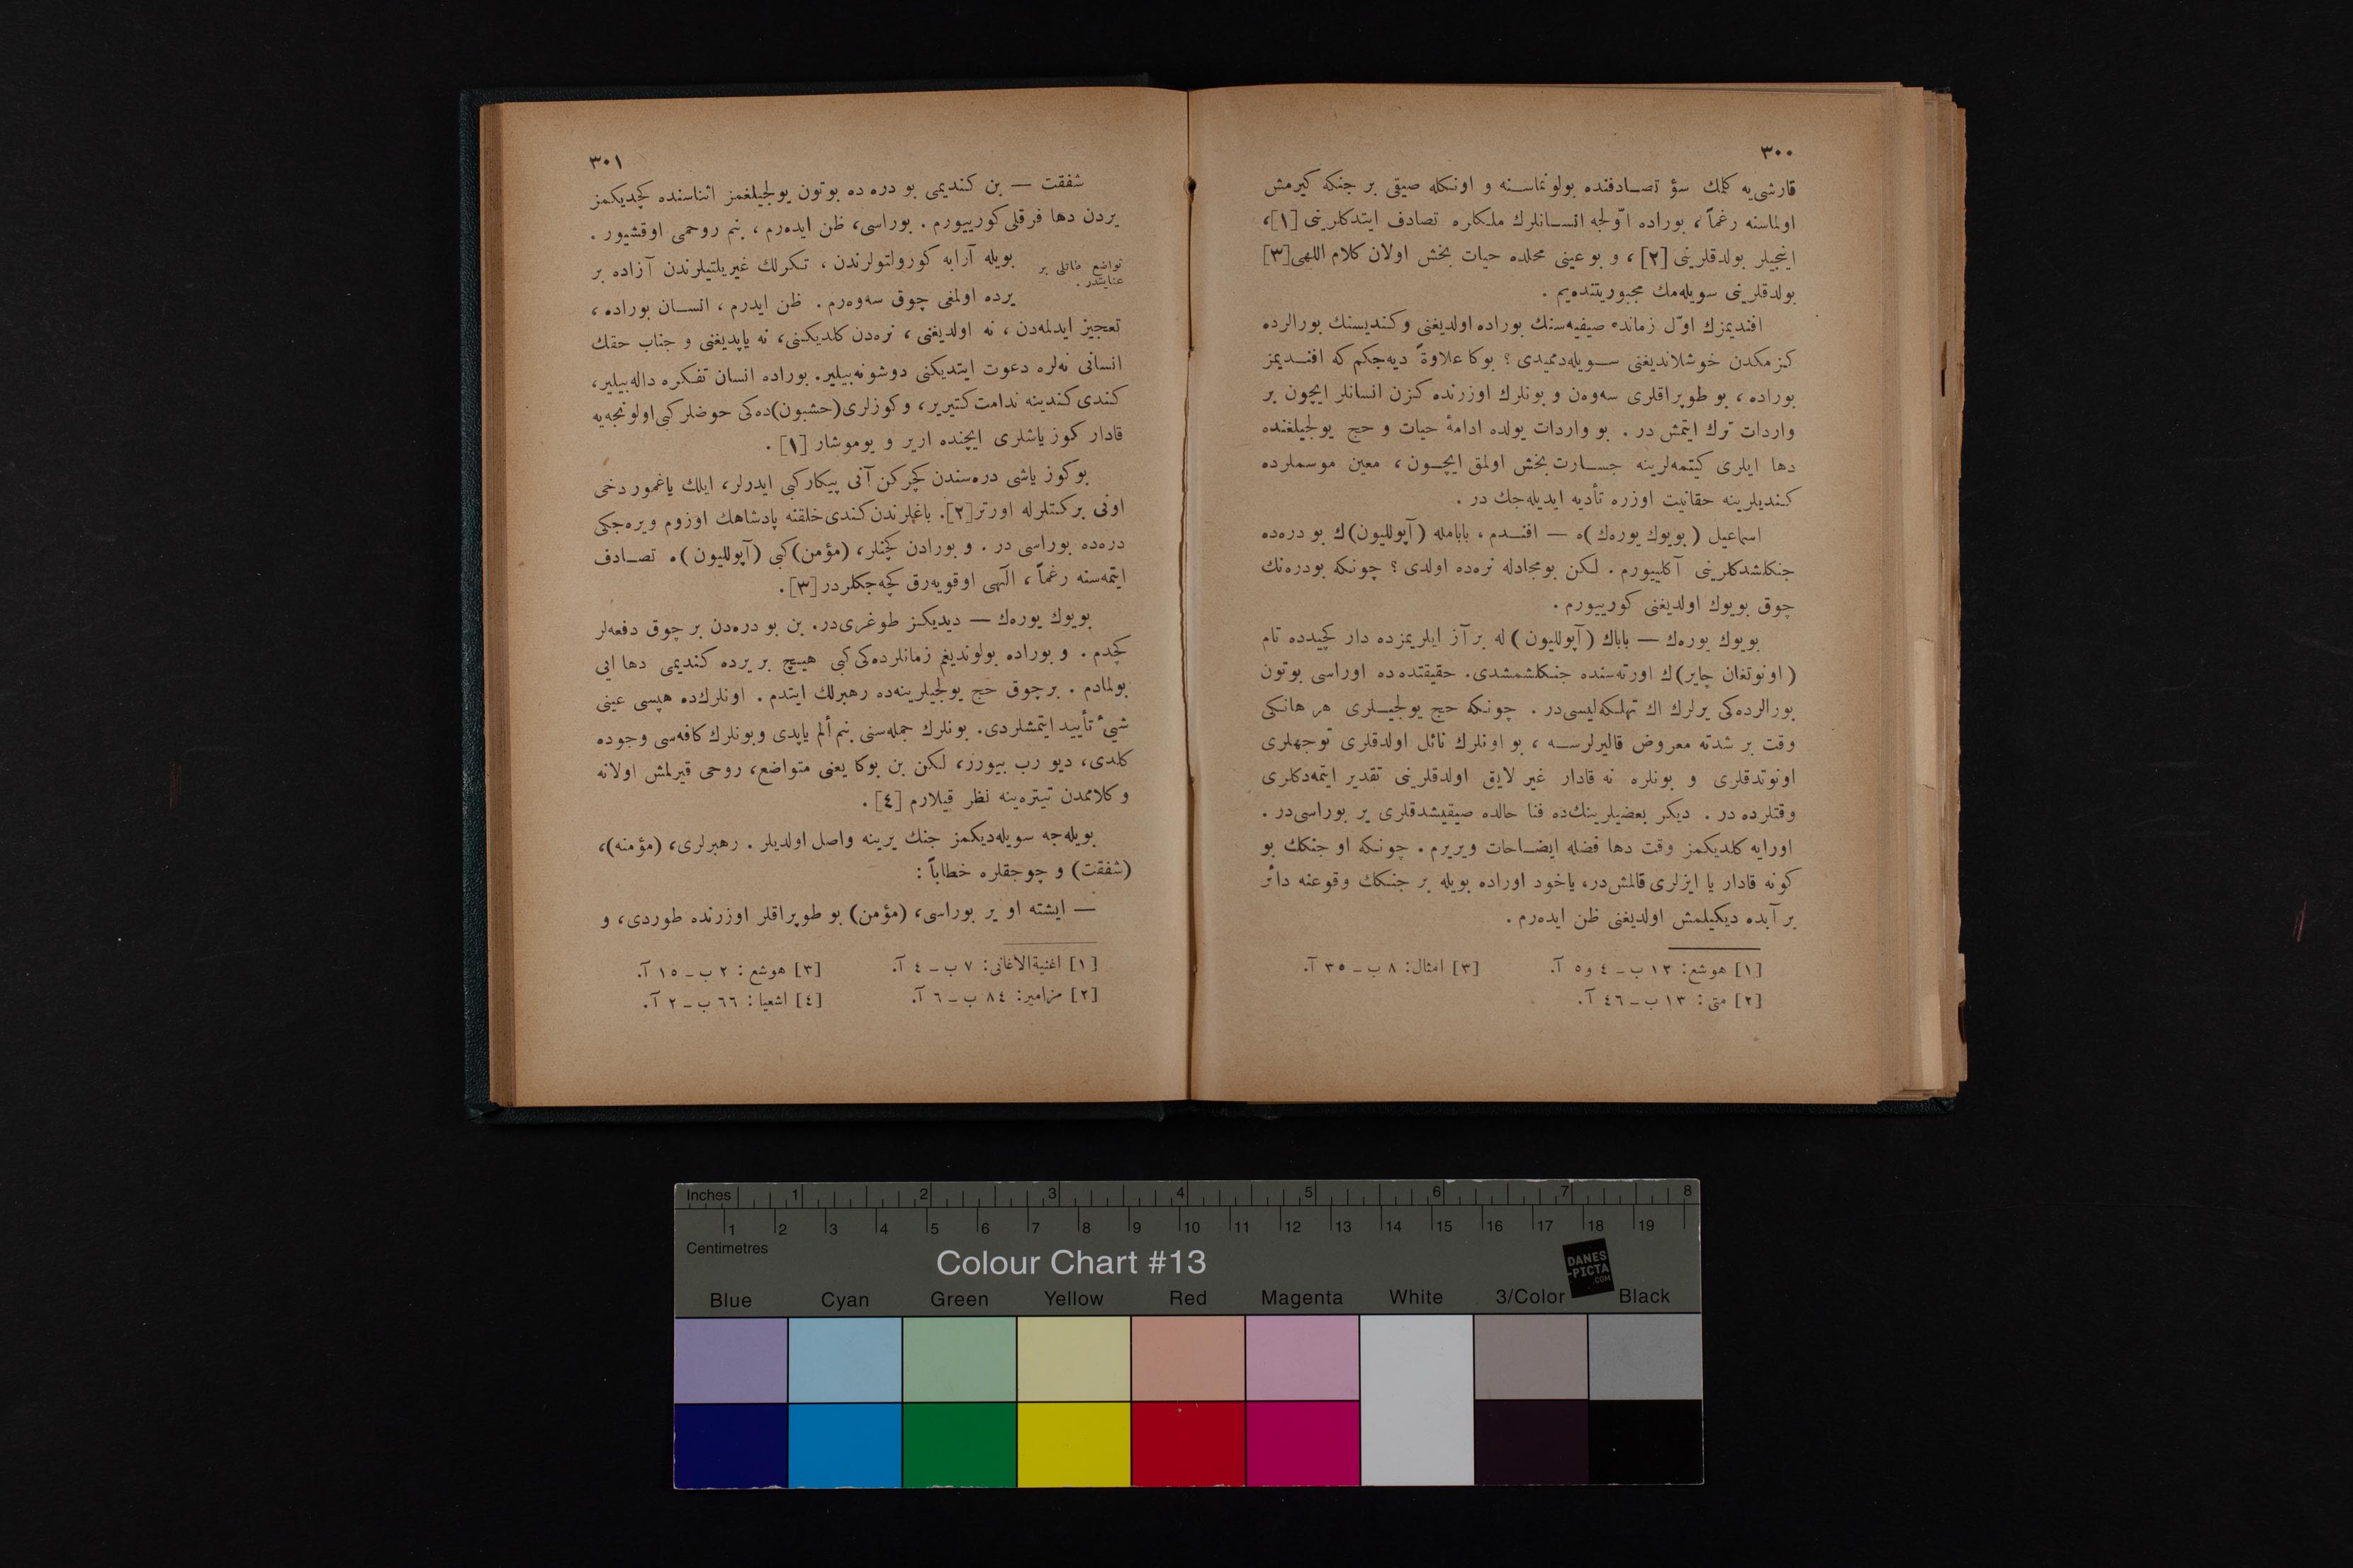 ٣٠٠
قارشی‌یه كلمك سوٴ تصـادفنده بولونماسـنه و اونكله صیقی بر جنكه كیرمش
اولماسنه رغماً ، بوراده اوّلجه انسـانلرك ملكلره تصادف ایتدكلرینی [١]،
اینجیلر بولدقلرینی [٢] ، و بو عینی محلده حیات بخش اولان كلام اللهی [٣]
بولدقلرینی سویله‌مك مجبوریتنده‌یم .
افندیمزك اوّل زمانده صیفیه‌سنك بوراده اولدیغنی و كندیسنك بورالرده
كزمكدن خوشلاندیغنی سـویله‌دممیدی ؟ بوكا علاوةً دیه‌جكم كه افنـدیمز
بوراده ، بو طوپراقلری سه‌وه‌ن و بونلرك اوزرنده كزن انسانلر ایچون بر
واردات ترك ایتمش در . بو واردات یولده ادامهٔ حیات و حج یولجیلغنده
دها ایلری كیتمه‌لرینه جسـارت بخش اولمق ایچـون ، معین موسملرده
كندیلرینه حقانیت اوزره تأدیه ایدیله‌جك در .
اسماعیل ( بویوك یوره‌ك )ه — افنـدم ، بابامله ( آپوللیون )ك بو دره‌ده
جنكلشدكلرینی آكلییورم . لكن بو مجادله نره‌ده اولدی ؟ چونكه بودره‌نك
چوق بویوك اولدیغنی كورییورم .
بویوك یوره‌ك — باباك ( آپوللیون ) له بر آز ایلریمزده دار كچیدده تام
( اونوتغان چایر)ك اورته‌سنده جنكلشمشدی. حقیقتده ده اوراسی بوتون
بورالرده‌كی یرلرك اك تهلكه‌لیسی‌در . چونكه حج یولجیـلری هر هانكی
وقت بر شدته معروض قالیرلرسـه ، بو اونلرك نائل اولدقلری توجهلری
اونوتدقلری و بونلره نه قادار غیر لایق اولدقلرینی تقدیر ایتمه‌دكلری
وقتلرده در . دیكر بعضیلرینك‌ده فنا حالده صیقیشدقلری یر بوراسی‌در .
اورایه كلدیكمز وقت دها فضله ایضـاحات ویریرم . چونكه او جنكك بو
كونه قادار یا ایزلری قالمش‌در، یاخود اوراده بویله بر جنكك وقوعنه دائر
بر آبده دیكیلمش اولدیغنی ظن ایده‌رم .
[١] هوشع: ١٢ ب ـ ٤ و ٥ آ.
[٢] متی : ١٣ ب ـ ٤٦ آ.
[٣] امثال: ٨ ب ـ ٣٥ آ.
٣٠١
شفقت — بن كندیمی بو دره ده بوتون یولجیلغمز اثناسنده كچدیكمز
یردن دها فرقلی كورییورم . بوراسی، ظن ایده‌رم ، بنم روحمی اوقشیور .
تواضع طاتلی بر
عنایتدر .
بویله آرابه كورولتولرندن ، تكرلك غیریلتیلرندن آزاده بر
یرده اولمغی چوق سه‌وه‌رم . ظن ایدرم ، انسـان بوراده ،
تعجیز ایدلمه‌دن ، نه اولدیغنی ، نره‌دن كلدیكنی، نه یاپدیغنی و جناب حقك
انسانی نه‌لره دعوت ایتدیكنی دوشونه‌بیلیر. بوراده انسان تفكره داله‌بیلیر،
كندی كندینه ندامت كتیریر، و كوزلری(حشبون)ده‌كی حوضلر كبی اولونجه‌یه
قادار كوز یاشلری ایچنده اریر و یوموشار [١] .
بو كوز یاشی دره‌سندن كچركن آنی پیكار كبی ایدرلر، ایلك یاغمور دخی
اونی بركتلرله اورتر[٢]. باغلرندن كندی خلقنه پادشاهك اوزوم ویره‌جكی
دره‌ده بوراسی در . و بورادن كچنلر، (مؤمن) كبی (آپوللیون) ه تصـادف
ایتمه‌سنه رغماً ، الٓهی اوقویه‌رق كچه‌جكلردر [٣].
بویوك یوره‌ك — دیدیكز طوغری‌در. بن بو دره‌دن بر چوق دفعه‌لر
كچدم . و بوراده بولوندیغم زمانلرده‌كی كبی هیچ بر یرده كندیمی دها ایی
بولمادم . بر چوق حج یولجیلرینه‌ده رهبرلك ایتدم . اونلرك‌ده هپسی عینی
شیئ تأیید ایتمشلردی. بونلرك جمله‌سنی بنم ألم یاپدی و بونلرك كافه‌سی وجوده
كلدی، دیو رب بیورر، لكن بن بوكا یعنی متواضع، روحی قیرلمش اولانه
و كلاممدن تیتره‌ینه نظر قیلارم [٤] .
بویله‌جه سویله‌دیكمز جنك یرینه واصل اولدیلر . رهبرلری، (مؤمنه)،
(شفقت) و چوجقلره خطاباً :
— ایشته او یر بوراسی، (مؤمن) بو طوپراقلر اوزرنده طوردی، و
[١] اغنیةالاغانی: ٧ ب ـ ٤ آ.
[٢] مزامیر: ٨٤ ب ـ ٦ آ.
[٣] هوشع : ٢ ب ـ ١٥ آ.
[٤] اشعیا : ٦٦ ب ـ ٢ آ.
Inches 1 2 3 4 5 6 7 8
1 2 3 4 5 6 7 8 9 10 11 12 13 14 15 16 17 18 19
Centimetres
Colour Chart #13
DANES
-PICTA
.COM
Blue Cyan Green Yellow Red Magenta White 3/Color Black